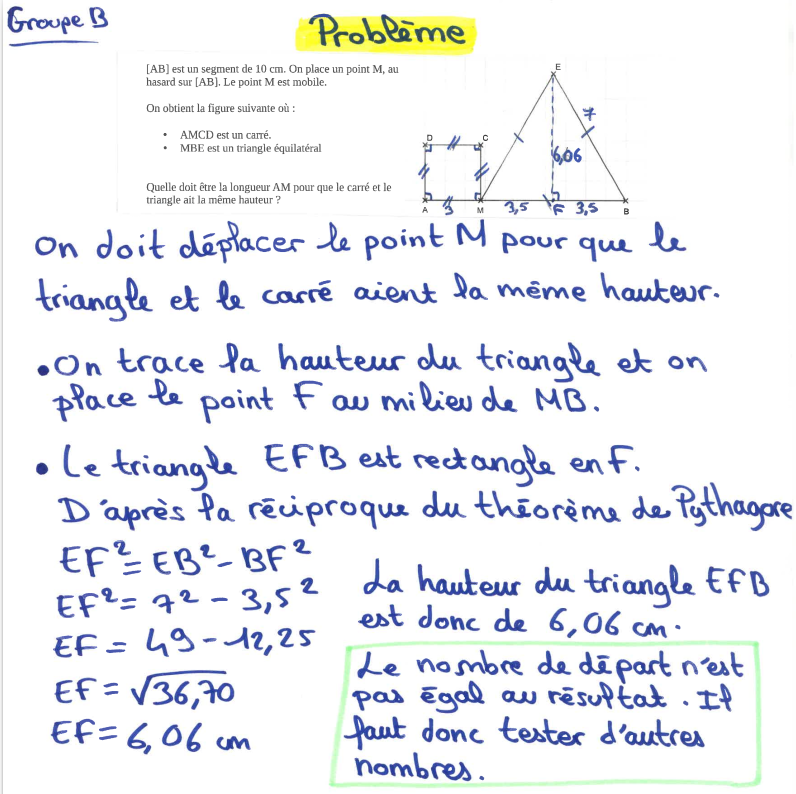 Groupe B
Problème
[AB] est un segment de 10 cm. On place un point M, au
hasard sur [AB]. Le point M est mobile.
On obtient la figure suivante où :
• AMCD est un carré.
• MBE est un triangle équilatéral
Quelle doit être la longueur AM pour que le carré et le
triangle ait la même hauteur ?
E
7
D
C
6,06
A
3
M
3,5
F
3,5
B
On doit déplacer le point M pour que le
triangle et le carré aient la même hauteur.
• On trace la hauteur du triangle et on
place le point F au milieu de MB.
• Le triangle EFB est rectangle en F.
D'après la réciproque du théorème de Pythagore
EF² = EB² - BF²
EF² = 7² - 3,5²
EF = 49 - 12,25
EF = √36,70
EF = 6,06 cm
La hauteur du triangle EFB
est donc de 6,06 cm.
Le nombre de départ n'est
pas égal au résultat. Il
faut donc tester d'autres
nombres.